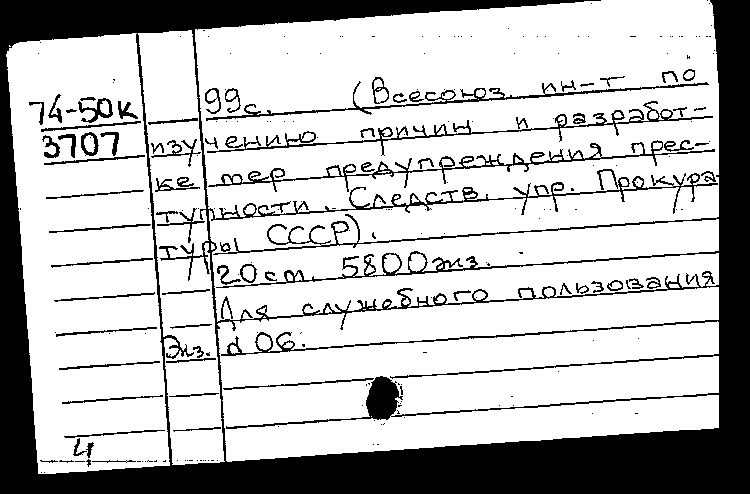 74-50к 99с. (Всесоюз. ин-т по
3707 изучению причин и разработ-
ке мер предупреждения прес-
тупности. Следств. упр. Прокура
туры СССР).
20 см. 5800 экз.
Для служебного пользования
Экз. d 06.
4